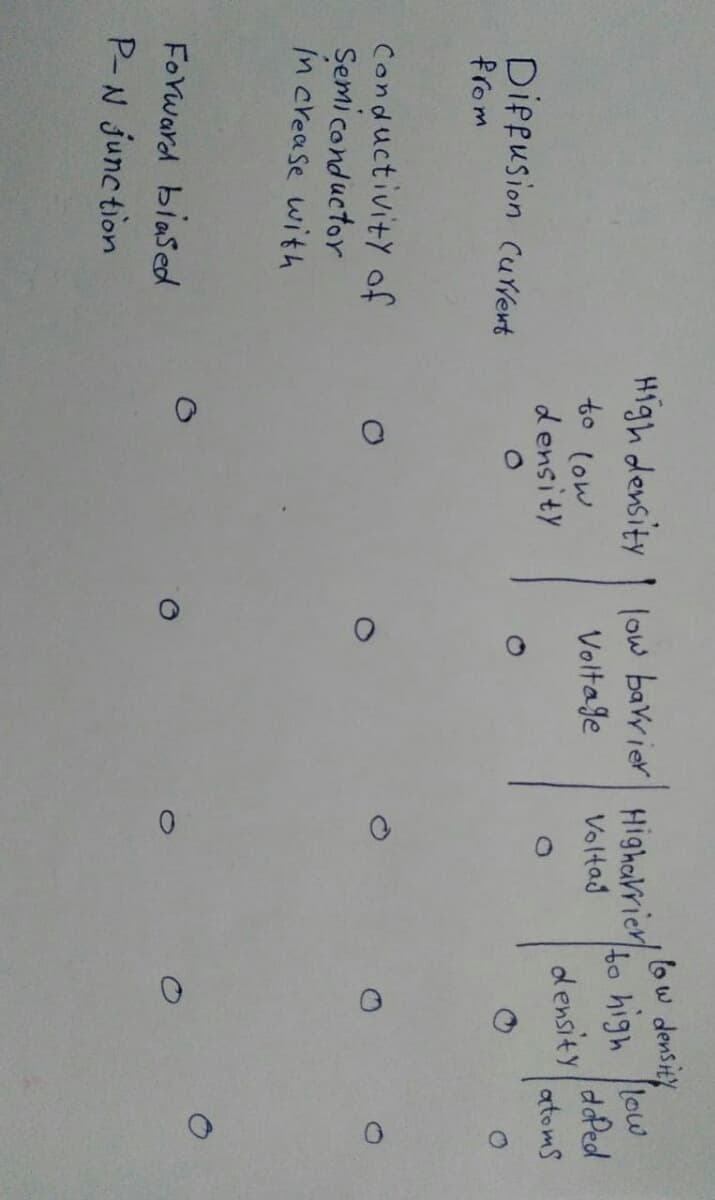 High density
to low
density
low barrier
Voltage
Higharrier
Voltag
low density
to high
density
low
doped
atoms
Diffusion Current
from
Conductivity of
Semiconductor
increase with
Forward biased
P-N junction